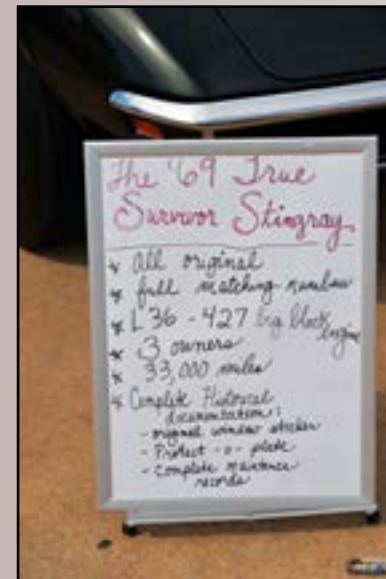 The '69 True
Survivor Stingray
* All original
* full matching numbers
* L36 - 427 big block engine
* 3 owners
* 33,000 miles
* Complete Historical
documentation:
- original window sticker
- Protect -o- plate
- Complete maintence
records